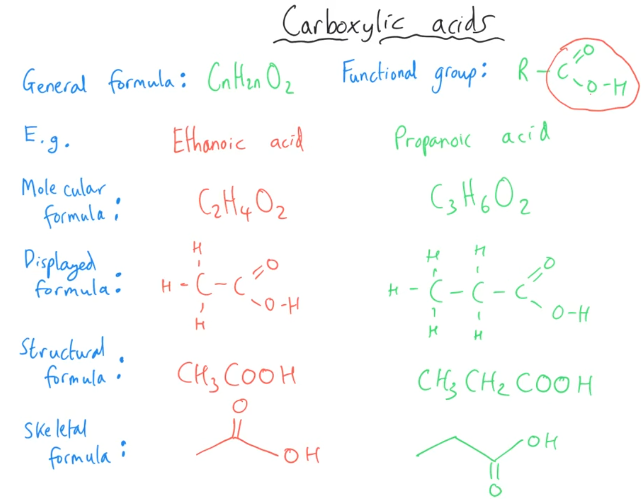 Carboxylic acids
General formula: CnH2nO2 Functional group: R-C=O O-H
E.g. Ethanoic acid Propanoic acid
Molecular formula: C2H4O2 C3H6O2
Displayed formula: H H-C-C=O O-H H H H H-C-C-C=O O-H H H
Structural formula: CH3COOH CH3CH2COOH
Skeletal formula: O OH OH O